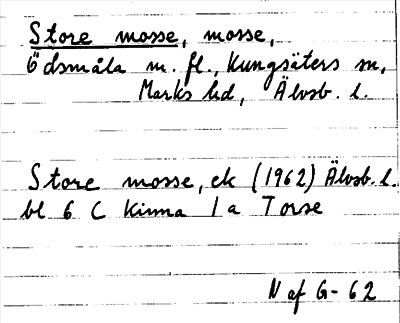 Store mosse, mosse,
Ödsmåla m. fl., Kungsäters sn,
Marks hd, Älvsb. l.
Store mosse, ek (1962) Älvsb. l.
bl 6 C Kinna 1 a Torse
N af G- 62